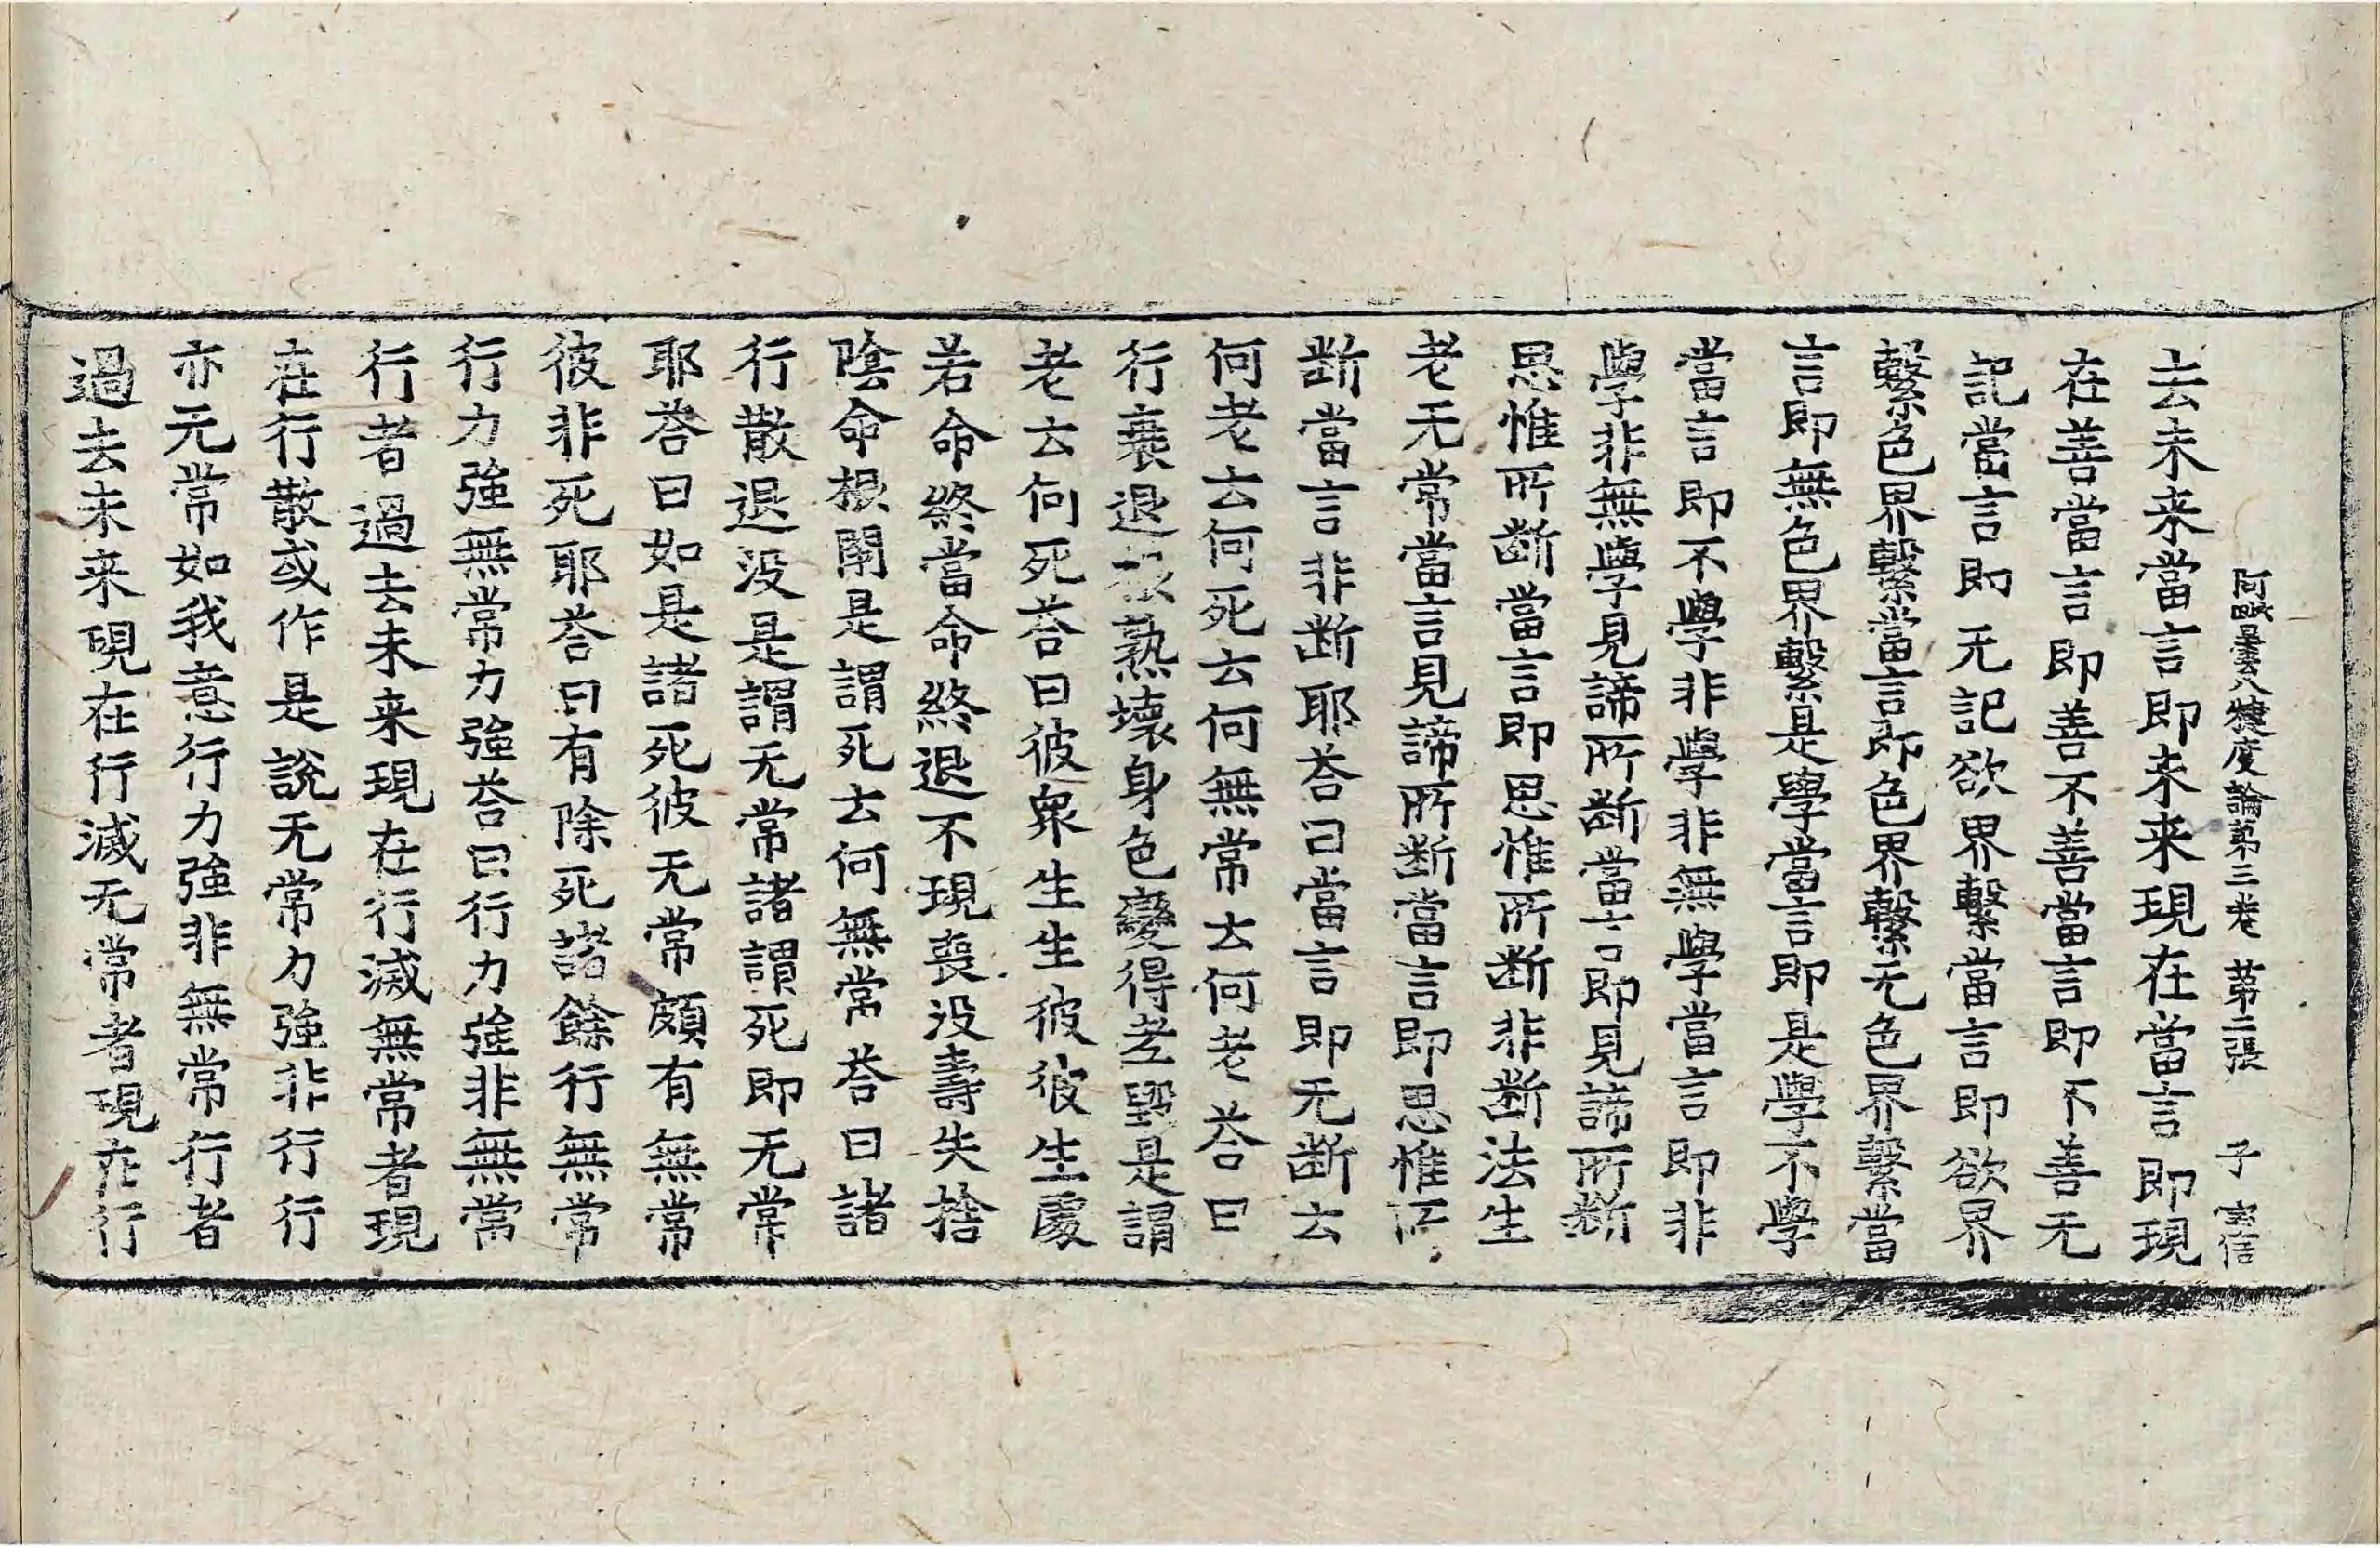 阿毗曇八犍度論第三卷 第二張 子 信
去未來當言即未來現在當言即現
在善當言即善不善當言即不善无
記當言即无記欲界繫當言即欲界
繫色界繫當言即色界繫无色界繫當
言即無色界繫是學當言即是學不學
當言即不學非學非無學當言即非
學非無學見諦所斷當言即見諦所斷
思惟所斷當言即思惟所斷非斷法生
老无常當言見諦所斷當言即思惟所
斷當言非斷耶荅曰當言即无斷云
何老云何死云何無常云何老荅曰
行衰退根熟壞身色變得老毀是謂
老云何死荅曰彼衆生生彼彼生處
若命終當命終退不現喪没壽失捨
陰命根閇是謂死云何無常荅曰諸
行散退没是謂无常諸謂死即无常
耶荅曰如是諸死彼无常頗有無常
彼非死耶荅曰有除死諸餘行無常
行力強無常力強荅曰行力強非無常
行者過去未来現在行滅無常者現
在行散或作是說无常力強非行行
亦无常如我意行力強非無常行者
過去未来現在行滅无常者現在行